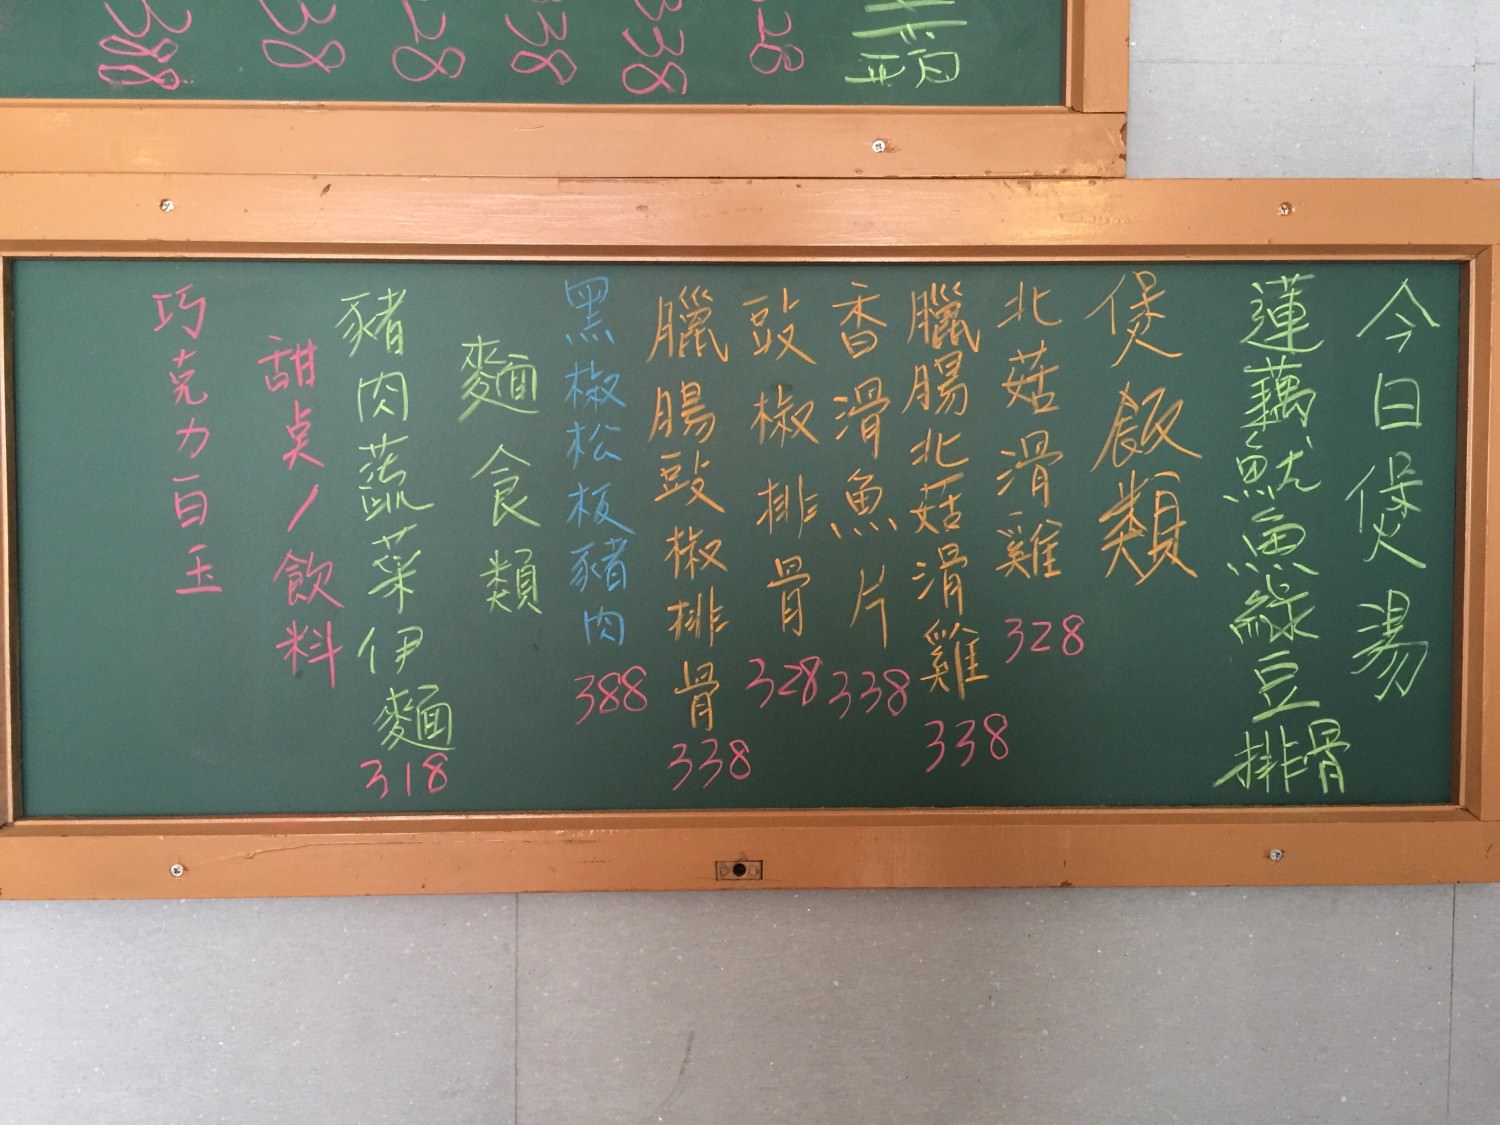 388
38
28
338
338
328
今日煲湯
蓮藕魷魚綠豆排骨
煲飯類
北菇滑雞 328
臘腸北菇滑雞 338
香滑魚片 338
豉椒排骨 328
臘腸豉椒排骨 338
黑椒松板豬肉 388
麵食類
豬肉蔬菜伊麵 318
甜點/飲料
巧克力白玉